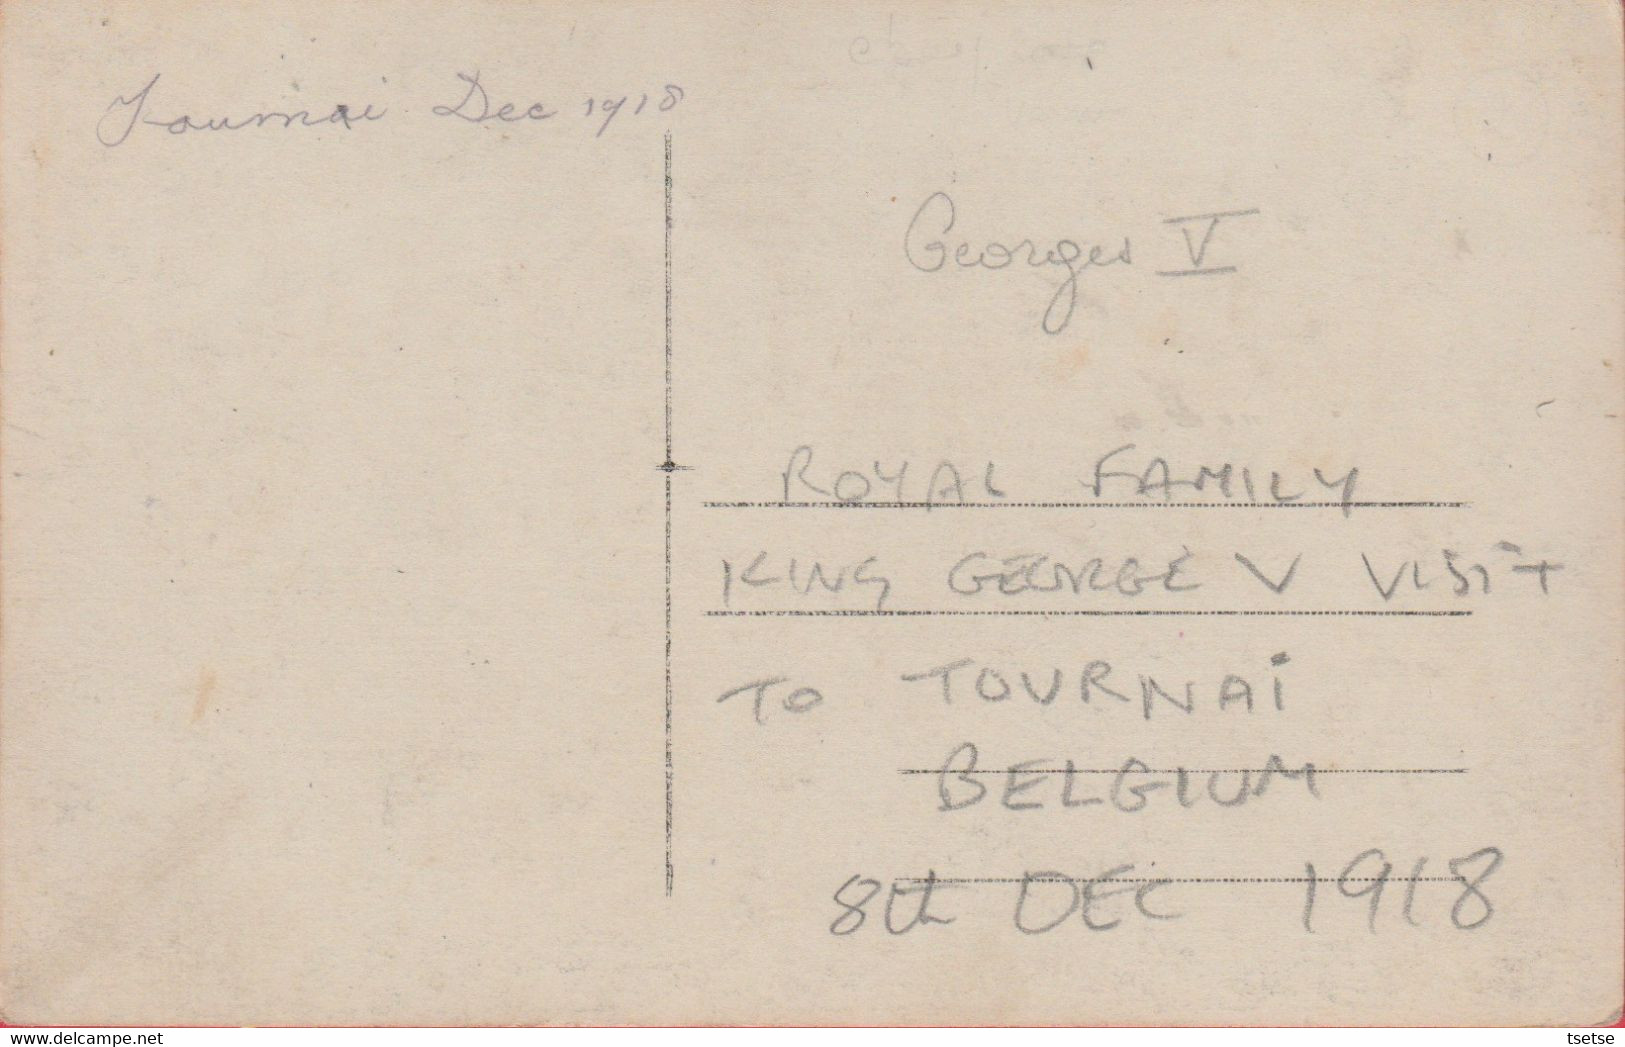 Tournai Dec 1918
Georges V
ROYAL FAMILY
KING GEORGE V VISIT
TO TOURNAI
BELGIUM
8th DEC 1918
www.delcampe.net
tsetse